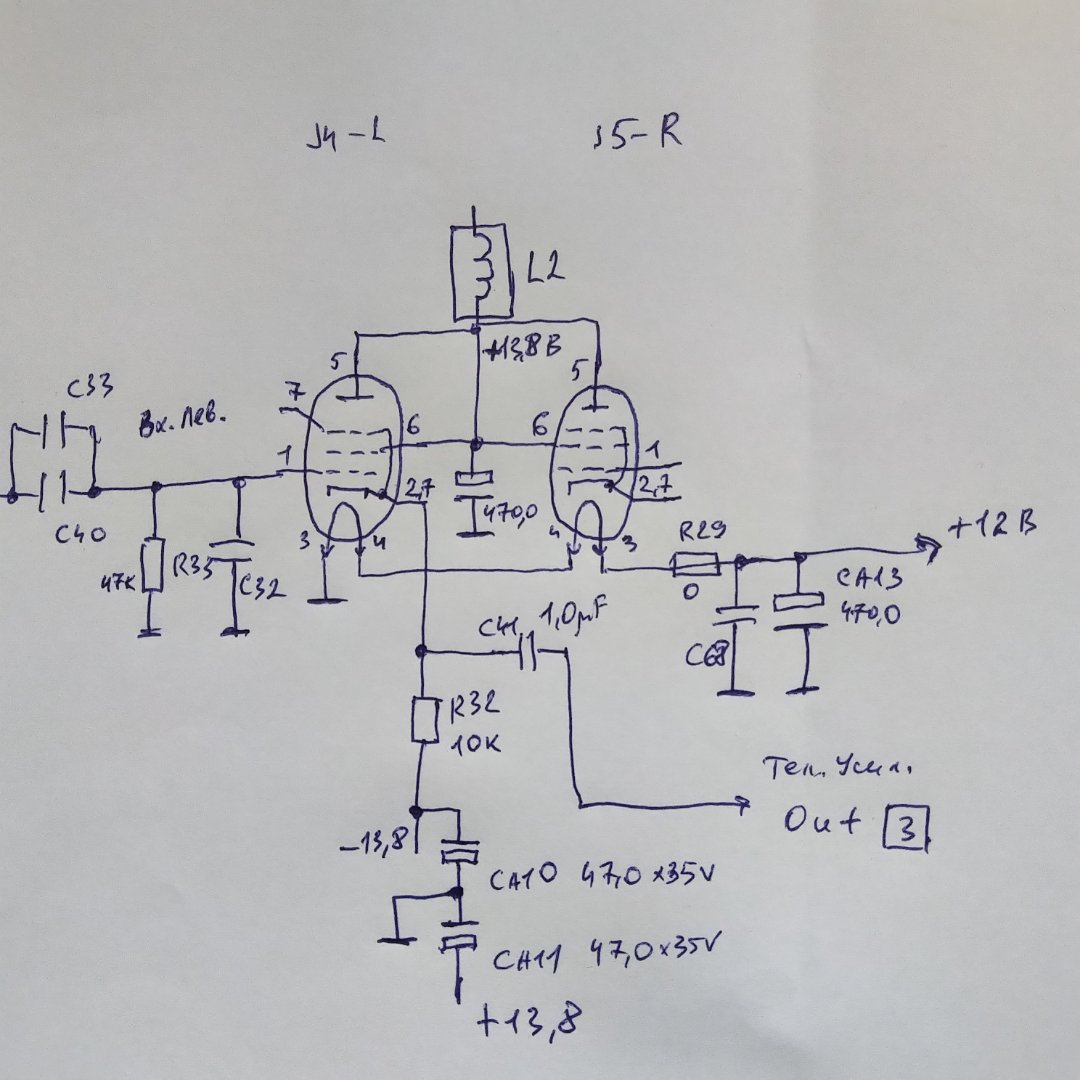 J4-L
J5-R
L2
+13,8В
5
5
C33
7
Вх. Лев.
6
6
1
1
2,7
2,7
470,0
C40
3
4
4
3
R29
+12В
47к
R33
C32
0
CA13
470,0
C41
1,0µF
C68
R32
10к
Тел. Усил.
Out 3
-13,8
CA10 47,0x35V
CA11 47,0x35V
+13,8